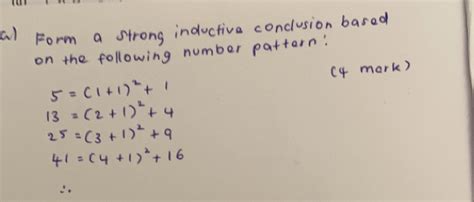 a) Form a strong inductive conclusion based
on the following number pattern:
(4 mark)
5 = (1+1)² + 1
13 = (2+1)² + 4
25 = (3+1)² + 9
41 = (4+1)² + 16
∴